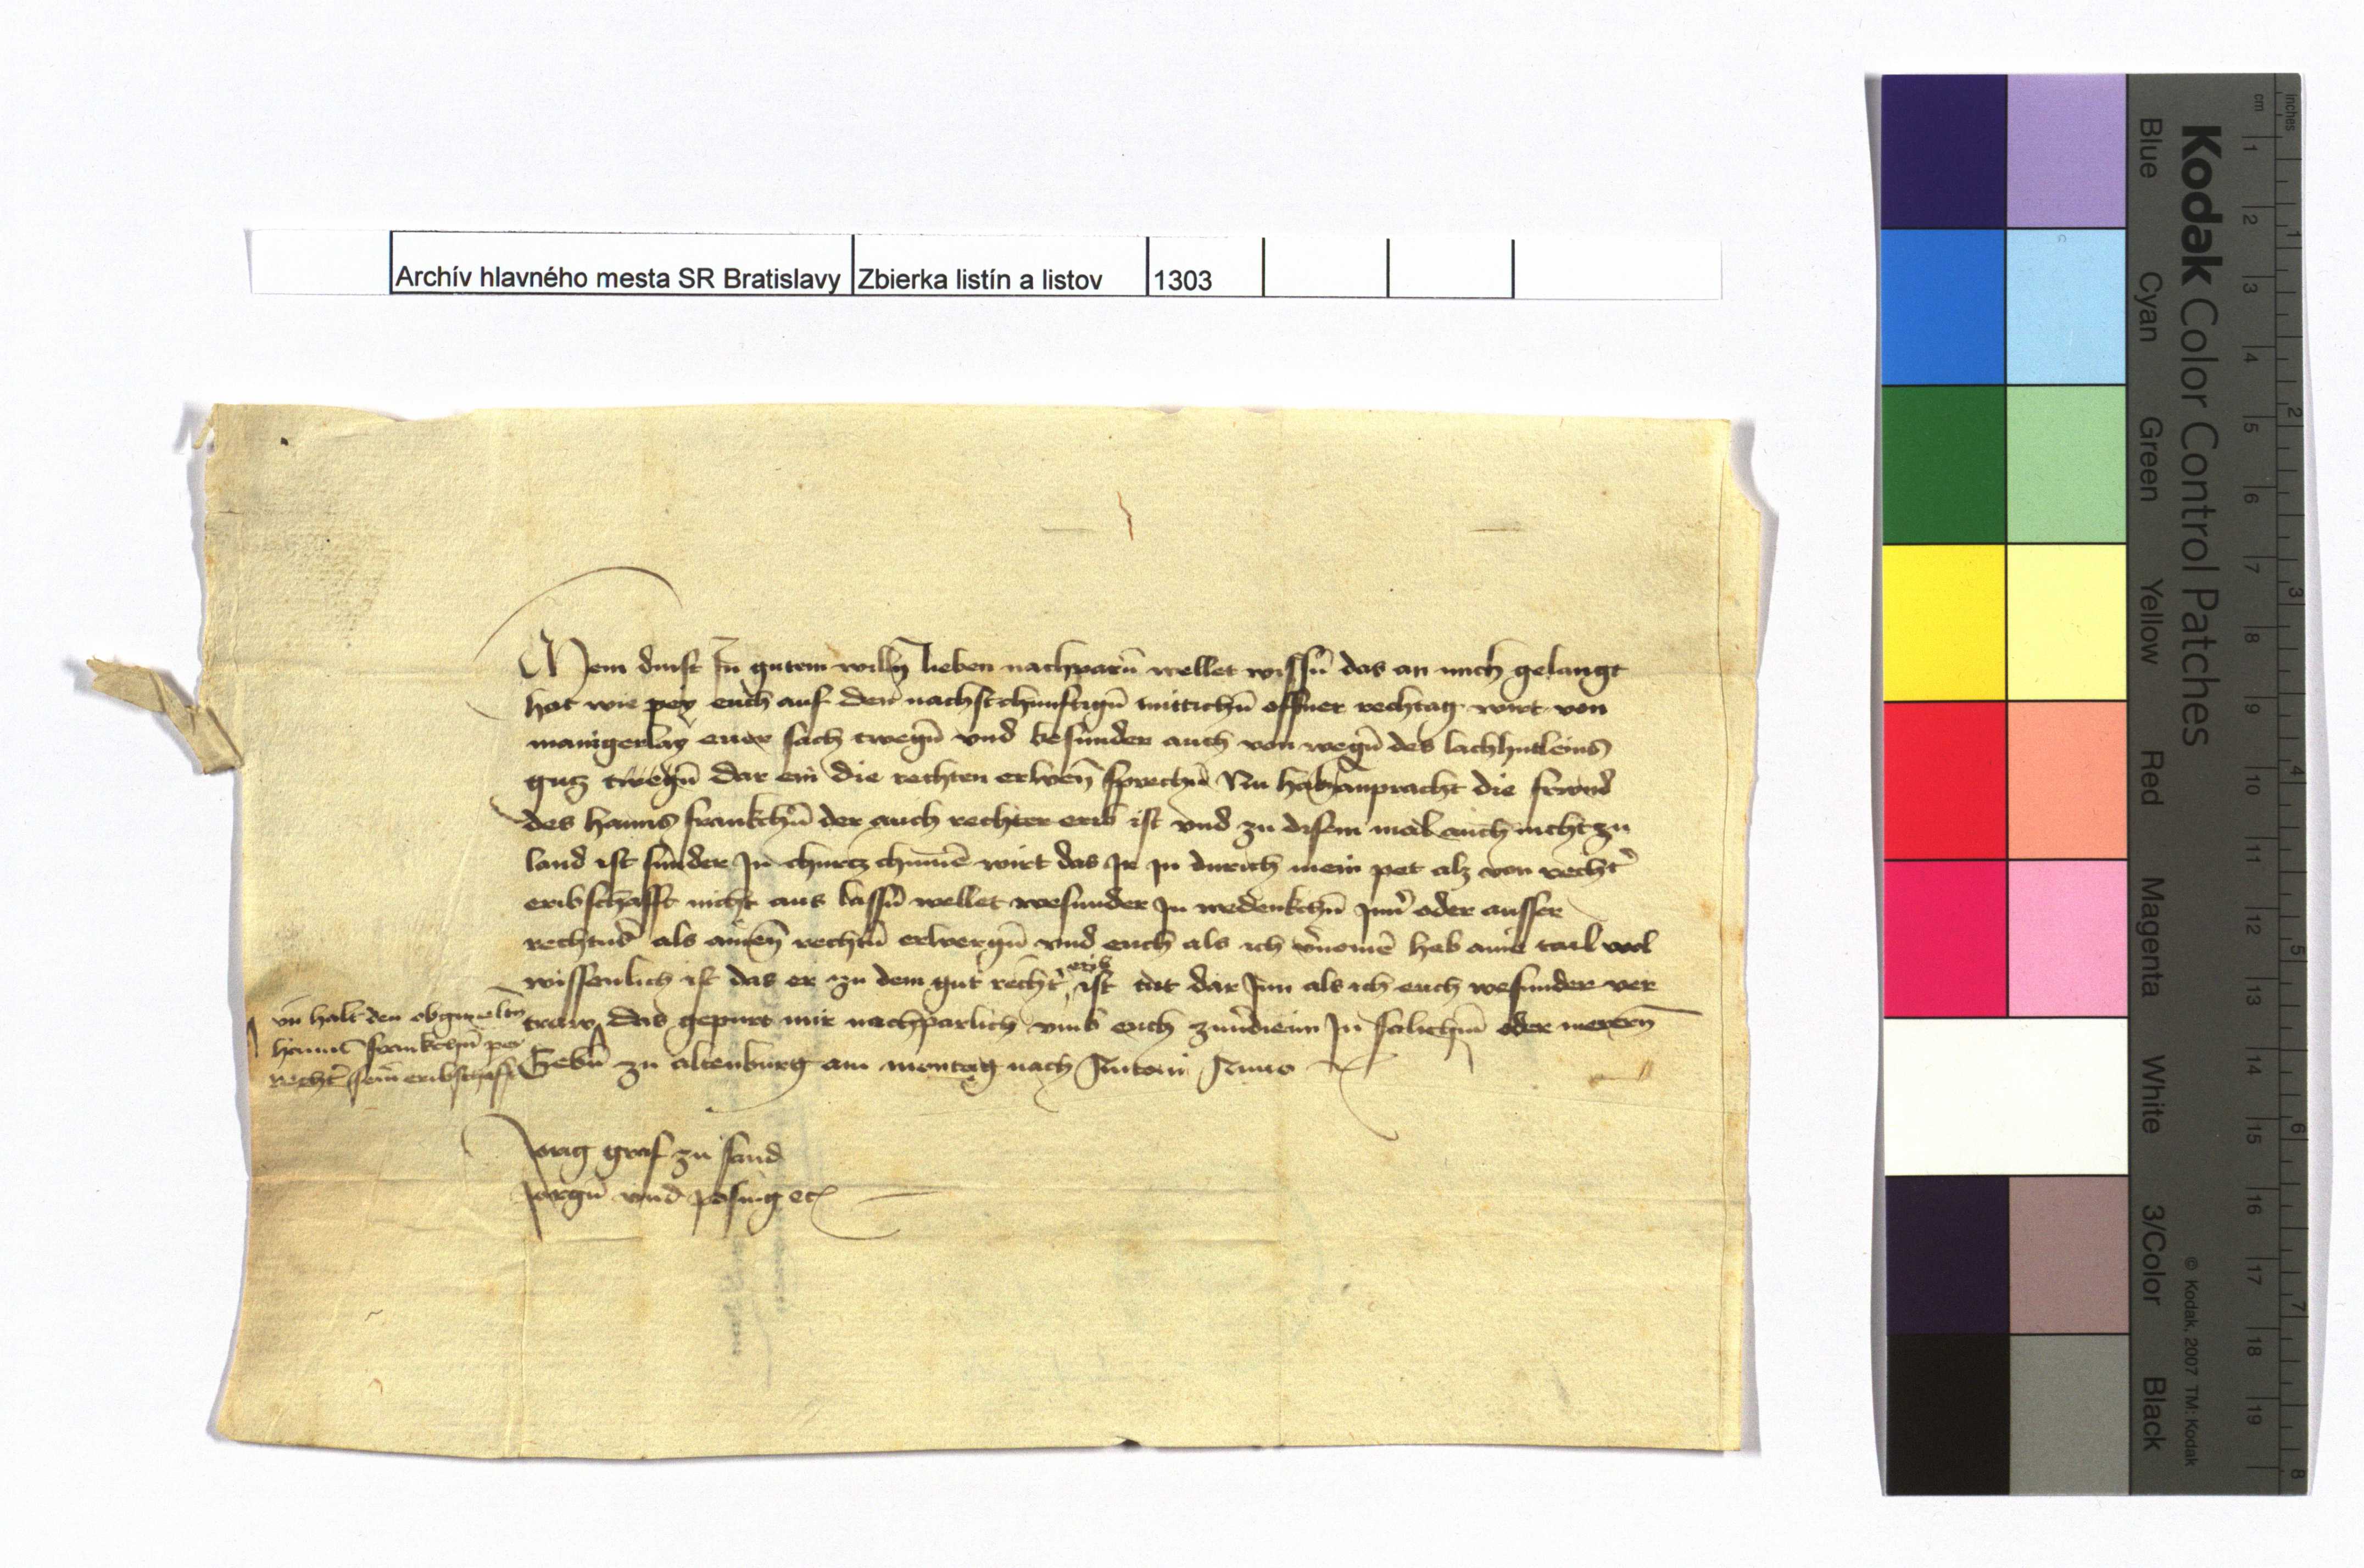 Archív hlavného mesta SR Bratislavy Zbierka listín a listov 1303
Mein dinst in gutem willn lieben nachparn wellet wissn das an mich gelangt
hat wie pey euch auf den nachstchunftign mittichn offner rechtag wirt von
manigerlay euer sach wegn vnd besunder auch von wegn des lachhutleins
gutz wegn dar ein die rechten erben sprechn Nu habn anpracht die frund
des hanns frankchn der auch rechter erib ist vnd zu disem mal auch nicht zu
land ist sunder in churtz chumen wirt das ir in durich mein pet alz von rechter
eribschafft nicht aus lassn wellet wesunder in wedenkchn inner oder ausser
rechtens als ainen rechtn erbergn vnd euch als ich vernomen hab ainer tail wol
wissenlich ist das er zu dem gut rechter erib ist tut dar inn als ich euch wesunder ver
traw das gepurt mir nachparlich vmb euch zuverdienn in solichm oder merern
vn halt den obgemeltn
hanns frankchn pey
rechter seiner eribschafft
Gebn zu altenburg am montag nach Antoni Anno
Jorig graf zu sand
Jorgn vnd posing etc
Kodak Color Control Patches
Blue Cyan Green Yellow Red Magenta White 3/Color Black
© Kodak, 2007 TM: Kodak
cm 1 2 3 4 5 6 7 8 9 10 11 12 13 14 15 16 17 18 19
inches 1 2 3 4 5 6 7 8